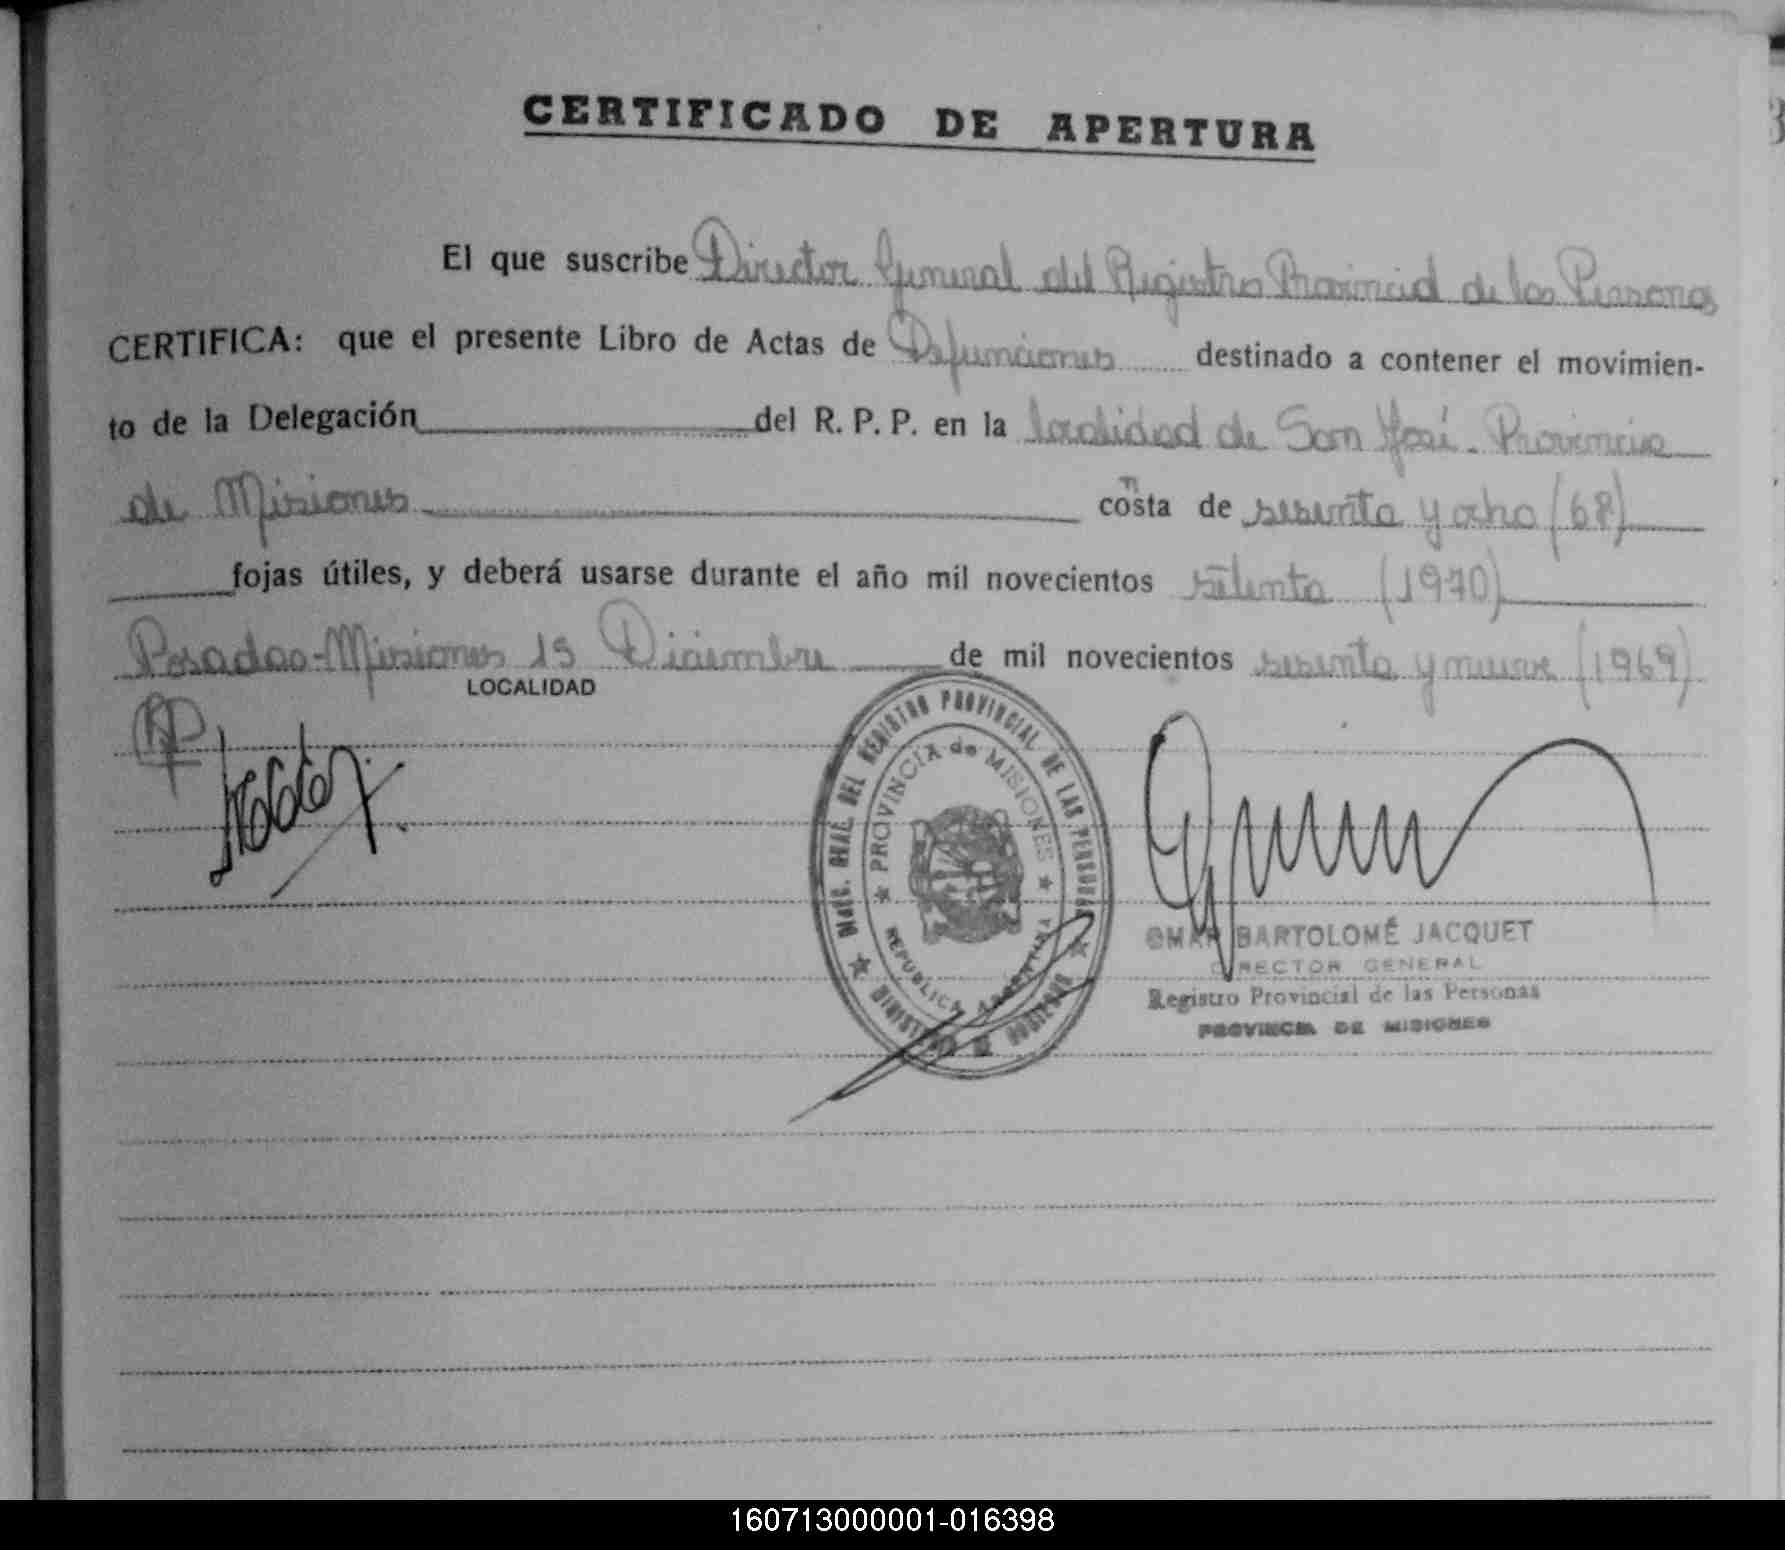 CERTIFICADO DE APERTURA
El que suscribe Director General del Registro Provincial de las Personas
CERTIFICA: que el presente Libro de Actas de Defunciones destinado a contener el movimien-
to de la Delegación del R. P. P. en la localidad de San José - Provincia
de Misiones costa de sesenta y ocho (68)
fojas útiles, y deberá usarse durante el año mil novecientos setenta (1970)
Posadas-Misiones 15 Diciembre de mil novecientos sesenta y nueve (1969)
LOCALIDAD
DIREC. GRAL. DEL REGISTRO PROVINCIAL DE LAS PERSONAS
★ PROVINCIA de MISIONES ★
REPUBLICA ARGENTINA
★ MINISTERIO DE GOBIERNO ★
OMAR BARTOLOMÉ JACQUET
DIRECTOR GENERAL
Registro Provincial de las Personas
PROVINCIA DE MISIONES
160713000001-016398